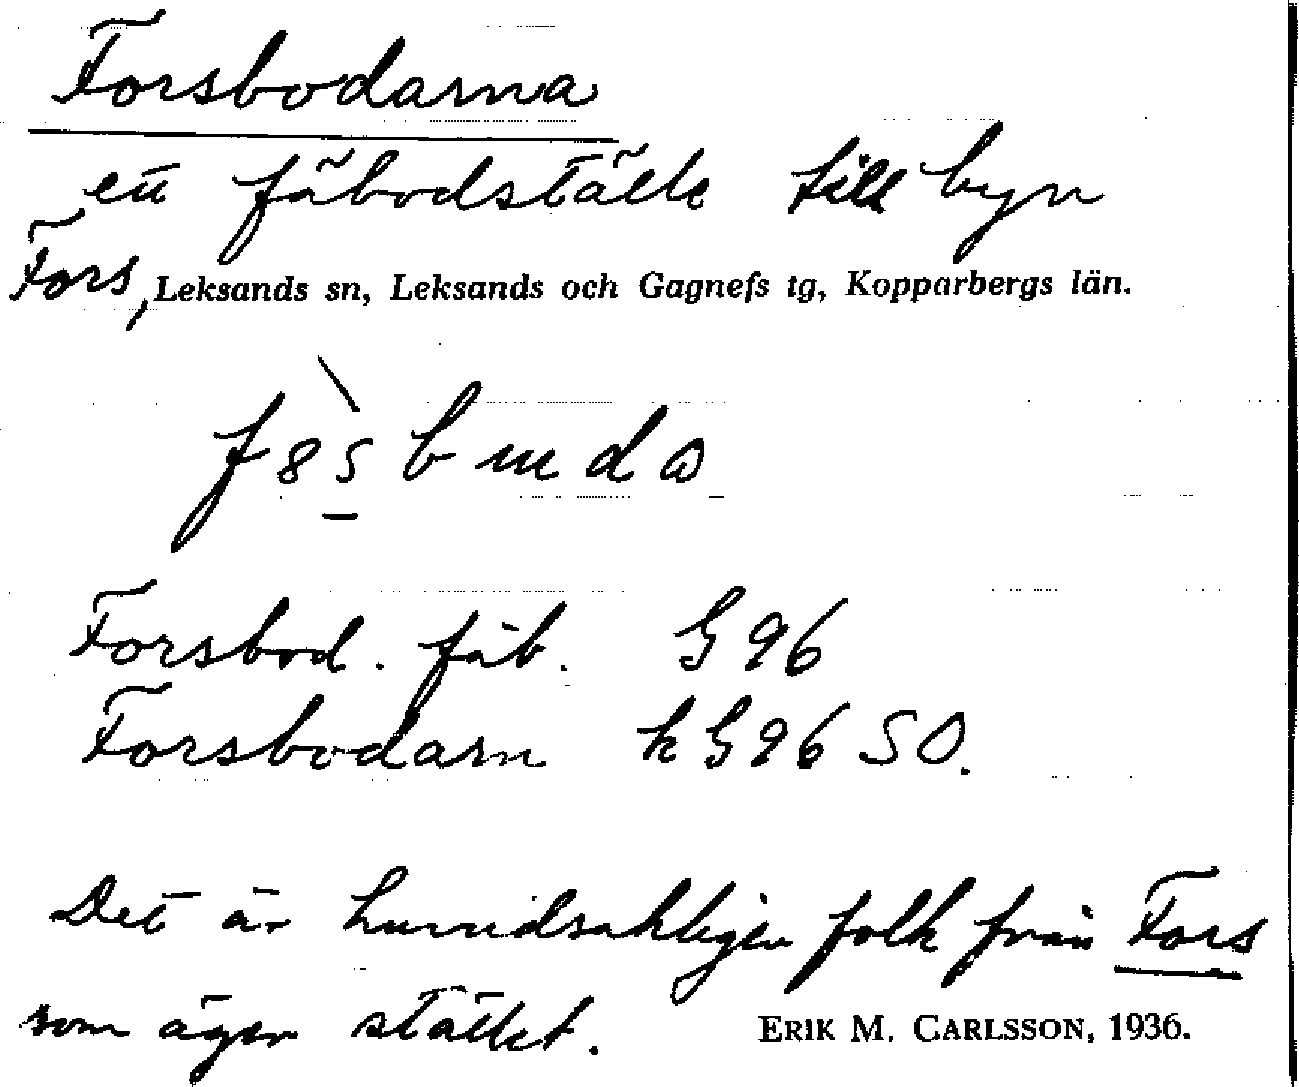 Forsbodarna
ett fäbodställe till byn
Fors, Leksands sn, Leksands och Gagnefs tg, Kopparbergs län.
Forsbod. fäb. G 96
Forsbodarn k G 96 SO.
Det är huvudsakligen folk från Fors
som äger stället. ERIK M. CARLSSON, 1936.